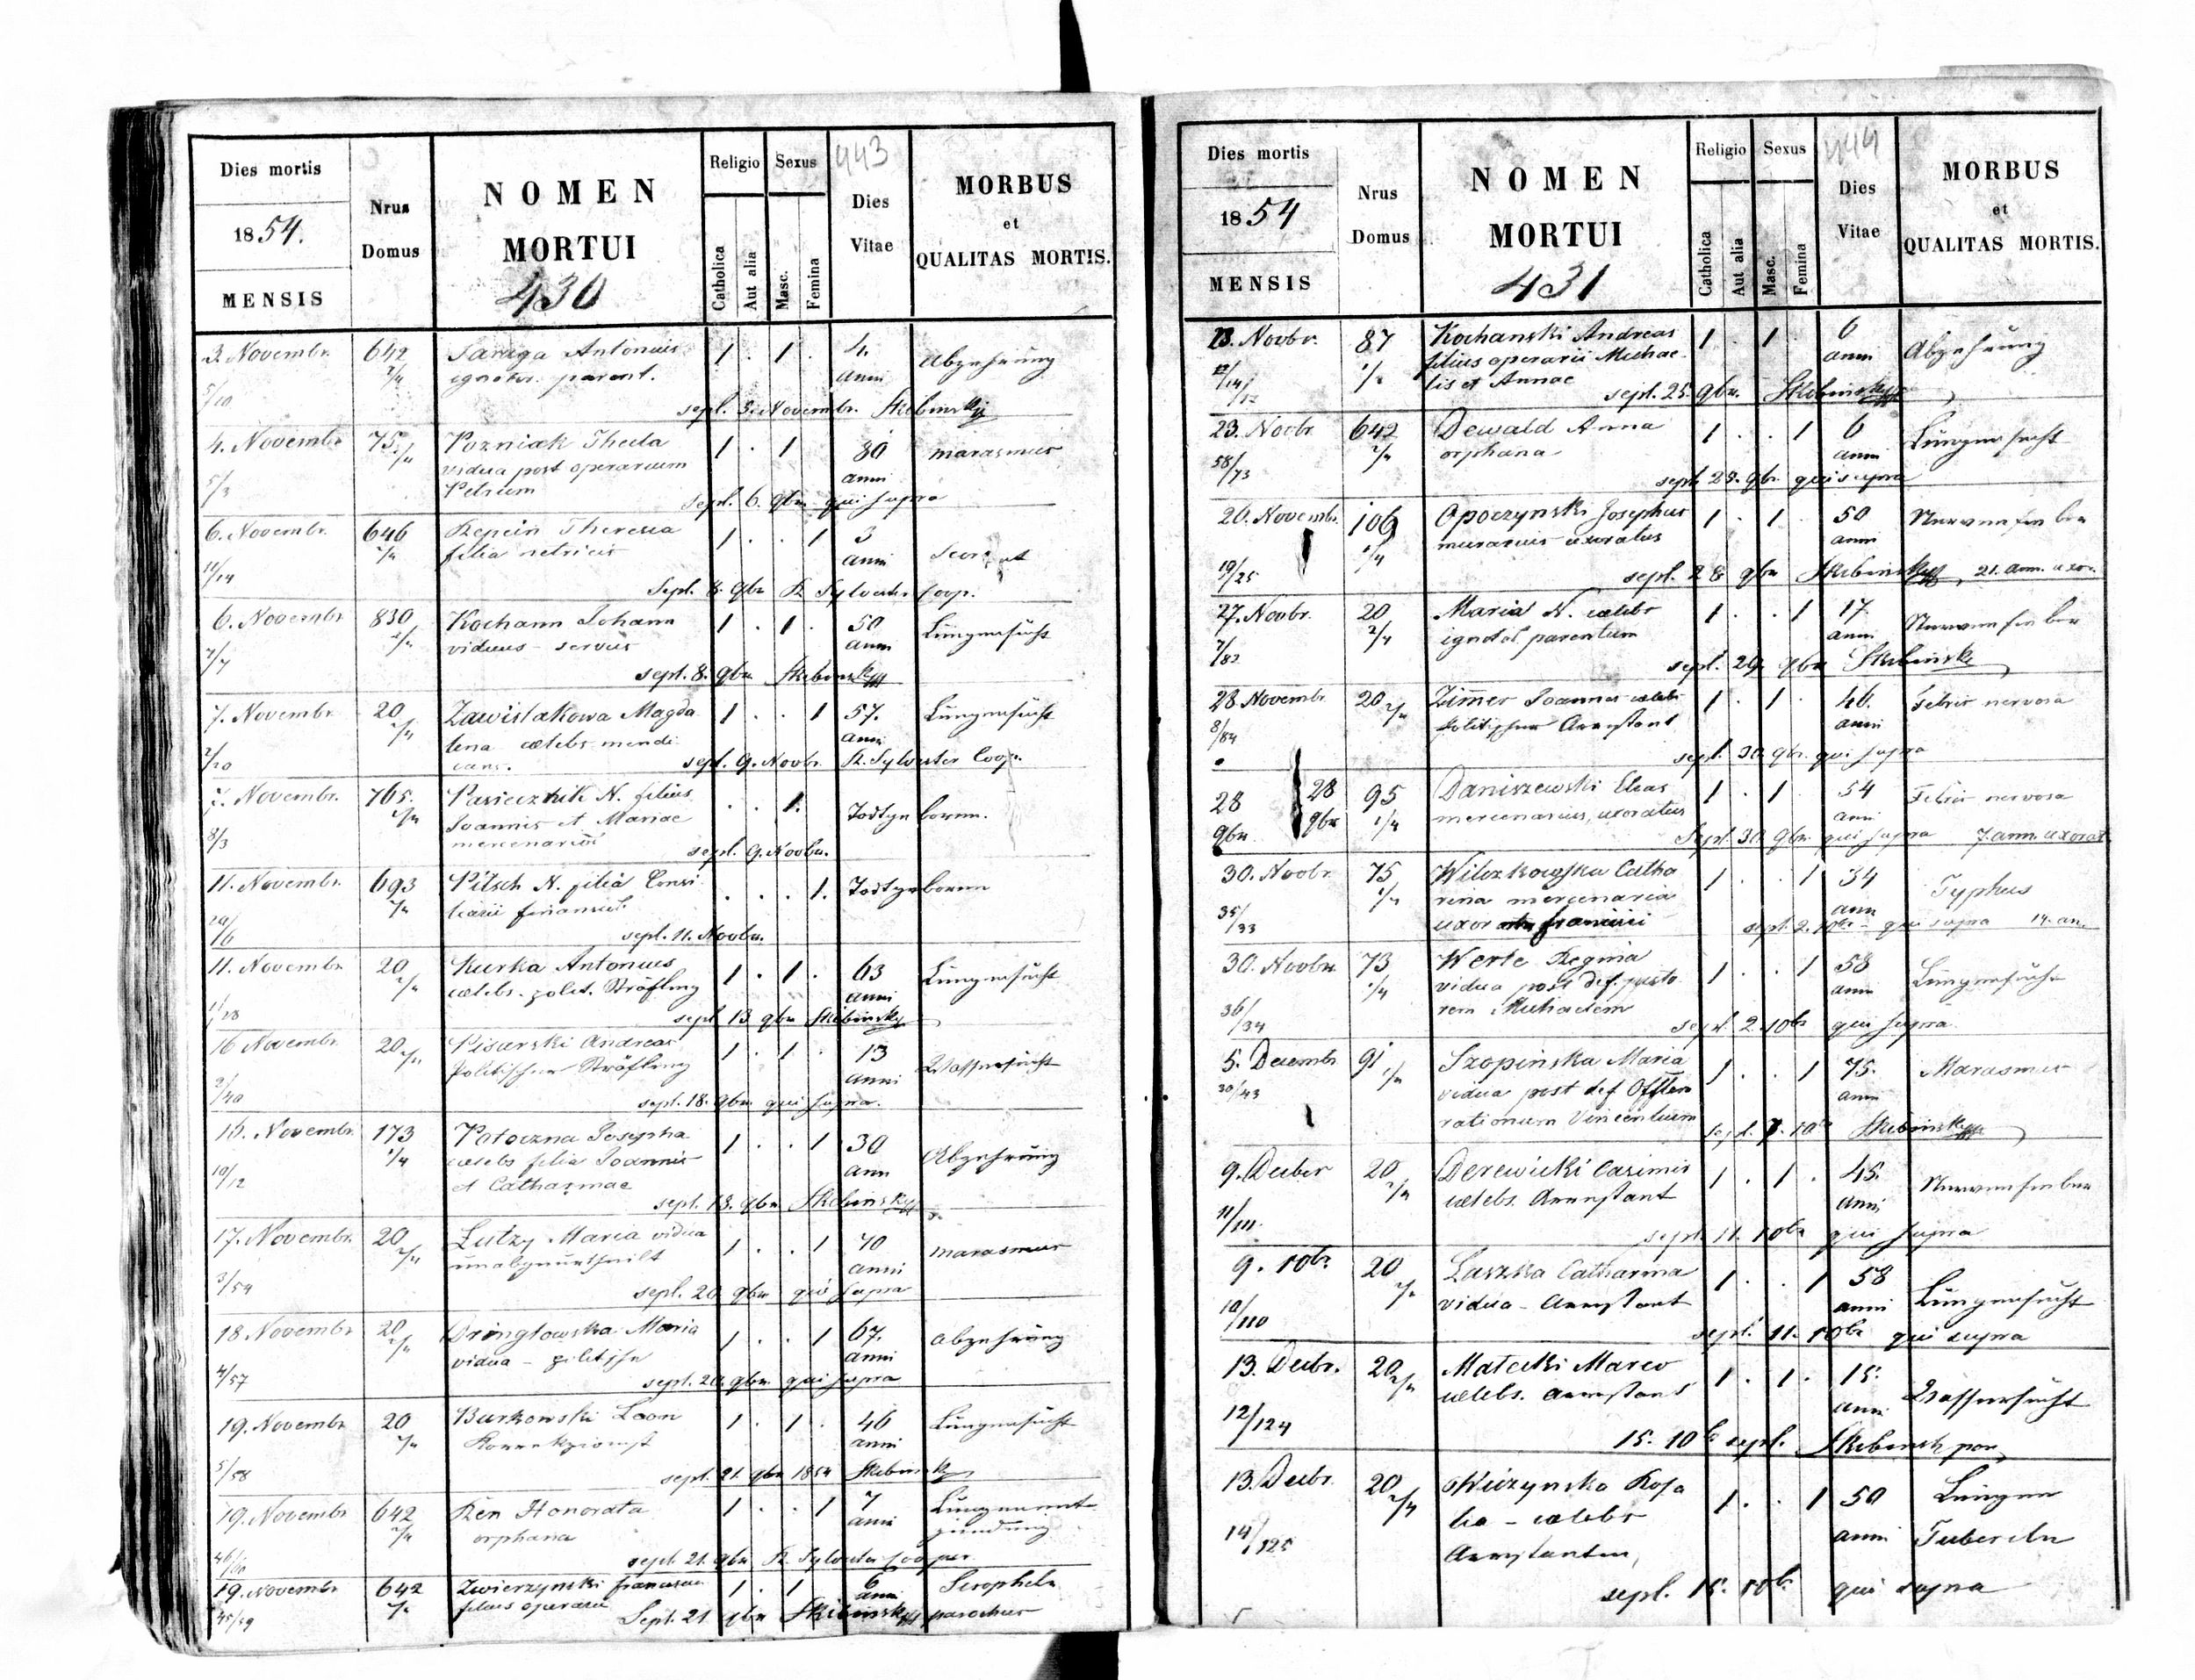 443
Dies mortis
1854.
MENSIS
Nrus Domus
NOMEN
MORTUI
430
Religio
Catholica
Aut alia
Sexus
Masc.
Femina
Dies Vitae
MORBUS
et
QUALITAS MORTIS.
3. Novembr. 642 Saraga Antonius 1 . 1 . 4. Abzehrung
2/4 ignotor. parent. anni
5/10 sepl. 5. Novembr. Skibinsky
4. Novembr 75. Pozniak Thecla 1 . 1 80 marasmus
1/4 vidua post operarium anni
5/3 Petrum sepl. 6. 9br qui supra
6. Novembr. 646 Repcin Theresia 1 . . 1 3
2/4 filia nutricis anni
11/14 Sepl. 8. 9br R Sylvester Coop.
6. Novembr 830 Kochann Johann 1 . 1 . 50 Lungensucht
2/4 viduus - servus anni
7/7 sepl. 8. 9br Skibinsky
7. Novembr 20 Zawislakowa Magda 1 . . 1 57. Lungensucht
2/4 lena caelebs mendi anni
2/20 cans. sepl. 9. Novbr. R. Sylvester Coop.
7. Novembr. 765. Pasiecznik N. filius . . 1. Todtgeboren.
2/4 Joannis et Mariae
8/3 mercenarior sepl. 9. Novbr.
11. Novembr. 693 Pitsch N. filia Consi . . . 1. Todtgeboren
2/4 liarii financiel.
20/6 sepl. 11. Novbr.
11. Novembr 20 Kurka Antonius 1 . 1 . 63 Lungensucht
2/4 caelebs. polit. Sträfling anni
sepl 13 9br Skibinsky
16 Novembr. 20 2/4 Pisarski Andreas 1 . 1 . 13 Wassersucht
Politischer Sträfling anni
2/40 sepl. 18. 9br qui supra.
16. Novembr. 173 Potoczna Josepha 1 . . 1 30 Abzehrung
1/4 caelebs filia Joannis ann
10/12 et Catharinae
sepl. 18. 9br Skibinsky
17. Novembr. 20 Lutzy Maria vidua 1 . . 1 70 marasmus
2/4 unabgeurtheilt anni
3/54 sepl. 20 9br qui supra
18 Novembr 20 Dringlowska Maria 1 . . 1 67. abzehrung
2/4 vidua - politische anni
4/57 sepl. 20. 9br. qui supra
19. Novembr 20 Burkowski Leon 1 . 1 . 46 Lungensucht
2/4 Korrekzionist anni
5/58 sepl. 21. 9br 1854 Skibinsky
19. Novembr 642 Ren Honorata 1 . . 1 7 Lungenent-
2/4 orphana anni zündung
46/60 sepl. 21. 9br R. Sylvester Cooper.
19. Novembr 642 Zwierzynski Franciscus 1 . 1 6 Scropheln
2/4 filius operarii anni
45/59 Sepl. 21 9br Skibinsky parochus
444
Dies mortis
1854
MENSIS
Nrus Domus
NOMEN
MORTUI
431
Religio
Catholica
Aut alia
Sexus
Masc.
Femina
Dies Vitae
MORBUS
et
QUALITAS MORTIS.
23. Novbr. 87 Kochanski Andreas 1 . 1 . 6 Abzehrung
1/4 filius operarii Michae- anni
lis et Annae sepl. 25. 9br. Skibinsky
23. Novbr 642 Dewald Anna 1 . . 1 6 Lungensucht
2/4 orphana anni
58/73 sepl. 25. 9br. qui supra
26. Novembr. 106 Opoczynski Josephus 1 . 1 . 50 Nervenfieber
1/4 murarius uxoratus anni
19/25 sepl. 28 9br Skibinsky, 21. ann. uxor.
27. Novbr. 20 Maria N. caelebs 1 . . 1 17 Nervenfieber
2/4 ignotor parentum anni
7/83 sepl. 29. 9br Skibinsky
28 Novembr 20 2/4 Zimer Joannes caelebs 1 . 1 . 46. Febris nervosa
Politischer Arrestant anni
8/84 sepl. 30. 9br. qui supra
28 28 95 Daniszewski Elias 1 . 1 . 54 Febris nervosa
9br 9br 1/4 mercenarius, uxoratus anni
Sepl. 30. 9br. qui supra 7. ann. uxorat.
30. Novbr 75 Wilczkowska Catha 1 . . 1 34 Typhus
1/4 rina mercenaria ann
35/33 uxor Francisci sepl. 2. 10br qui supra 14. an.
30. Novbr 73 Werle Regina 1 . . 1 58 Lungensucht
1/4 vidua post def. pisto anni
36/34 rem Michaelem
sepl. 2. 10br qui supra.
5. Decembr 91 Szopinska Maria 1 . . 1 75. Marasmus
vidua post def. anni
30/43 rationum Vincentium sepl. 7. 10br Skibinsky
9. Decber 20 Derewicki Casimir 1 . 1 . 45. Nervenfieber
2/4 caelebs. Arrestant anni
11/111. sepl. 11. 10br qui supra
9. 10br. 20 Laszka Catharina 1 . . 1 58 Lungensucht
2/4 vidua - Arrestant anni
10/110 sepl. 11. 10br qui supra
13. Decbr. 20 2/4 Malecki Marco 1 . 1 . 15. Wassersucht
caelebs. Arrestant anni
12/124 15. 10br sepl. Skibinsky par
13. Decbr. 20 Rosa 1 . . 1 50 Lungen
2/4 lia - caelebs anni Tuberceln
14/125 Arrestantin,
sepl. 15. 10br. qui supra